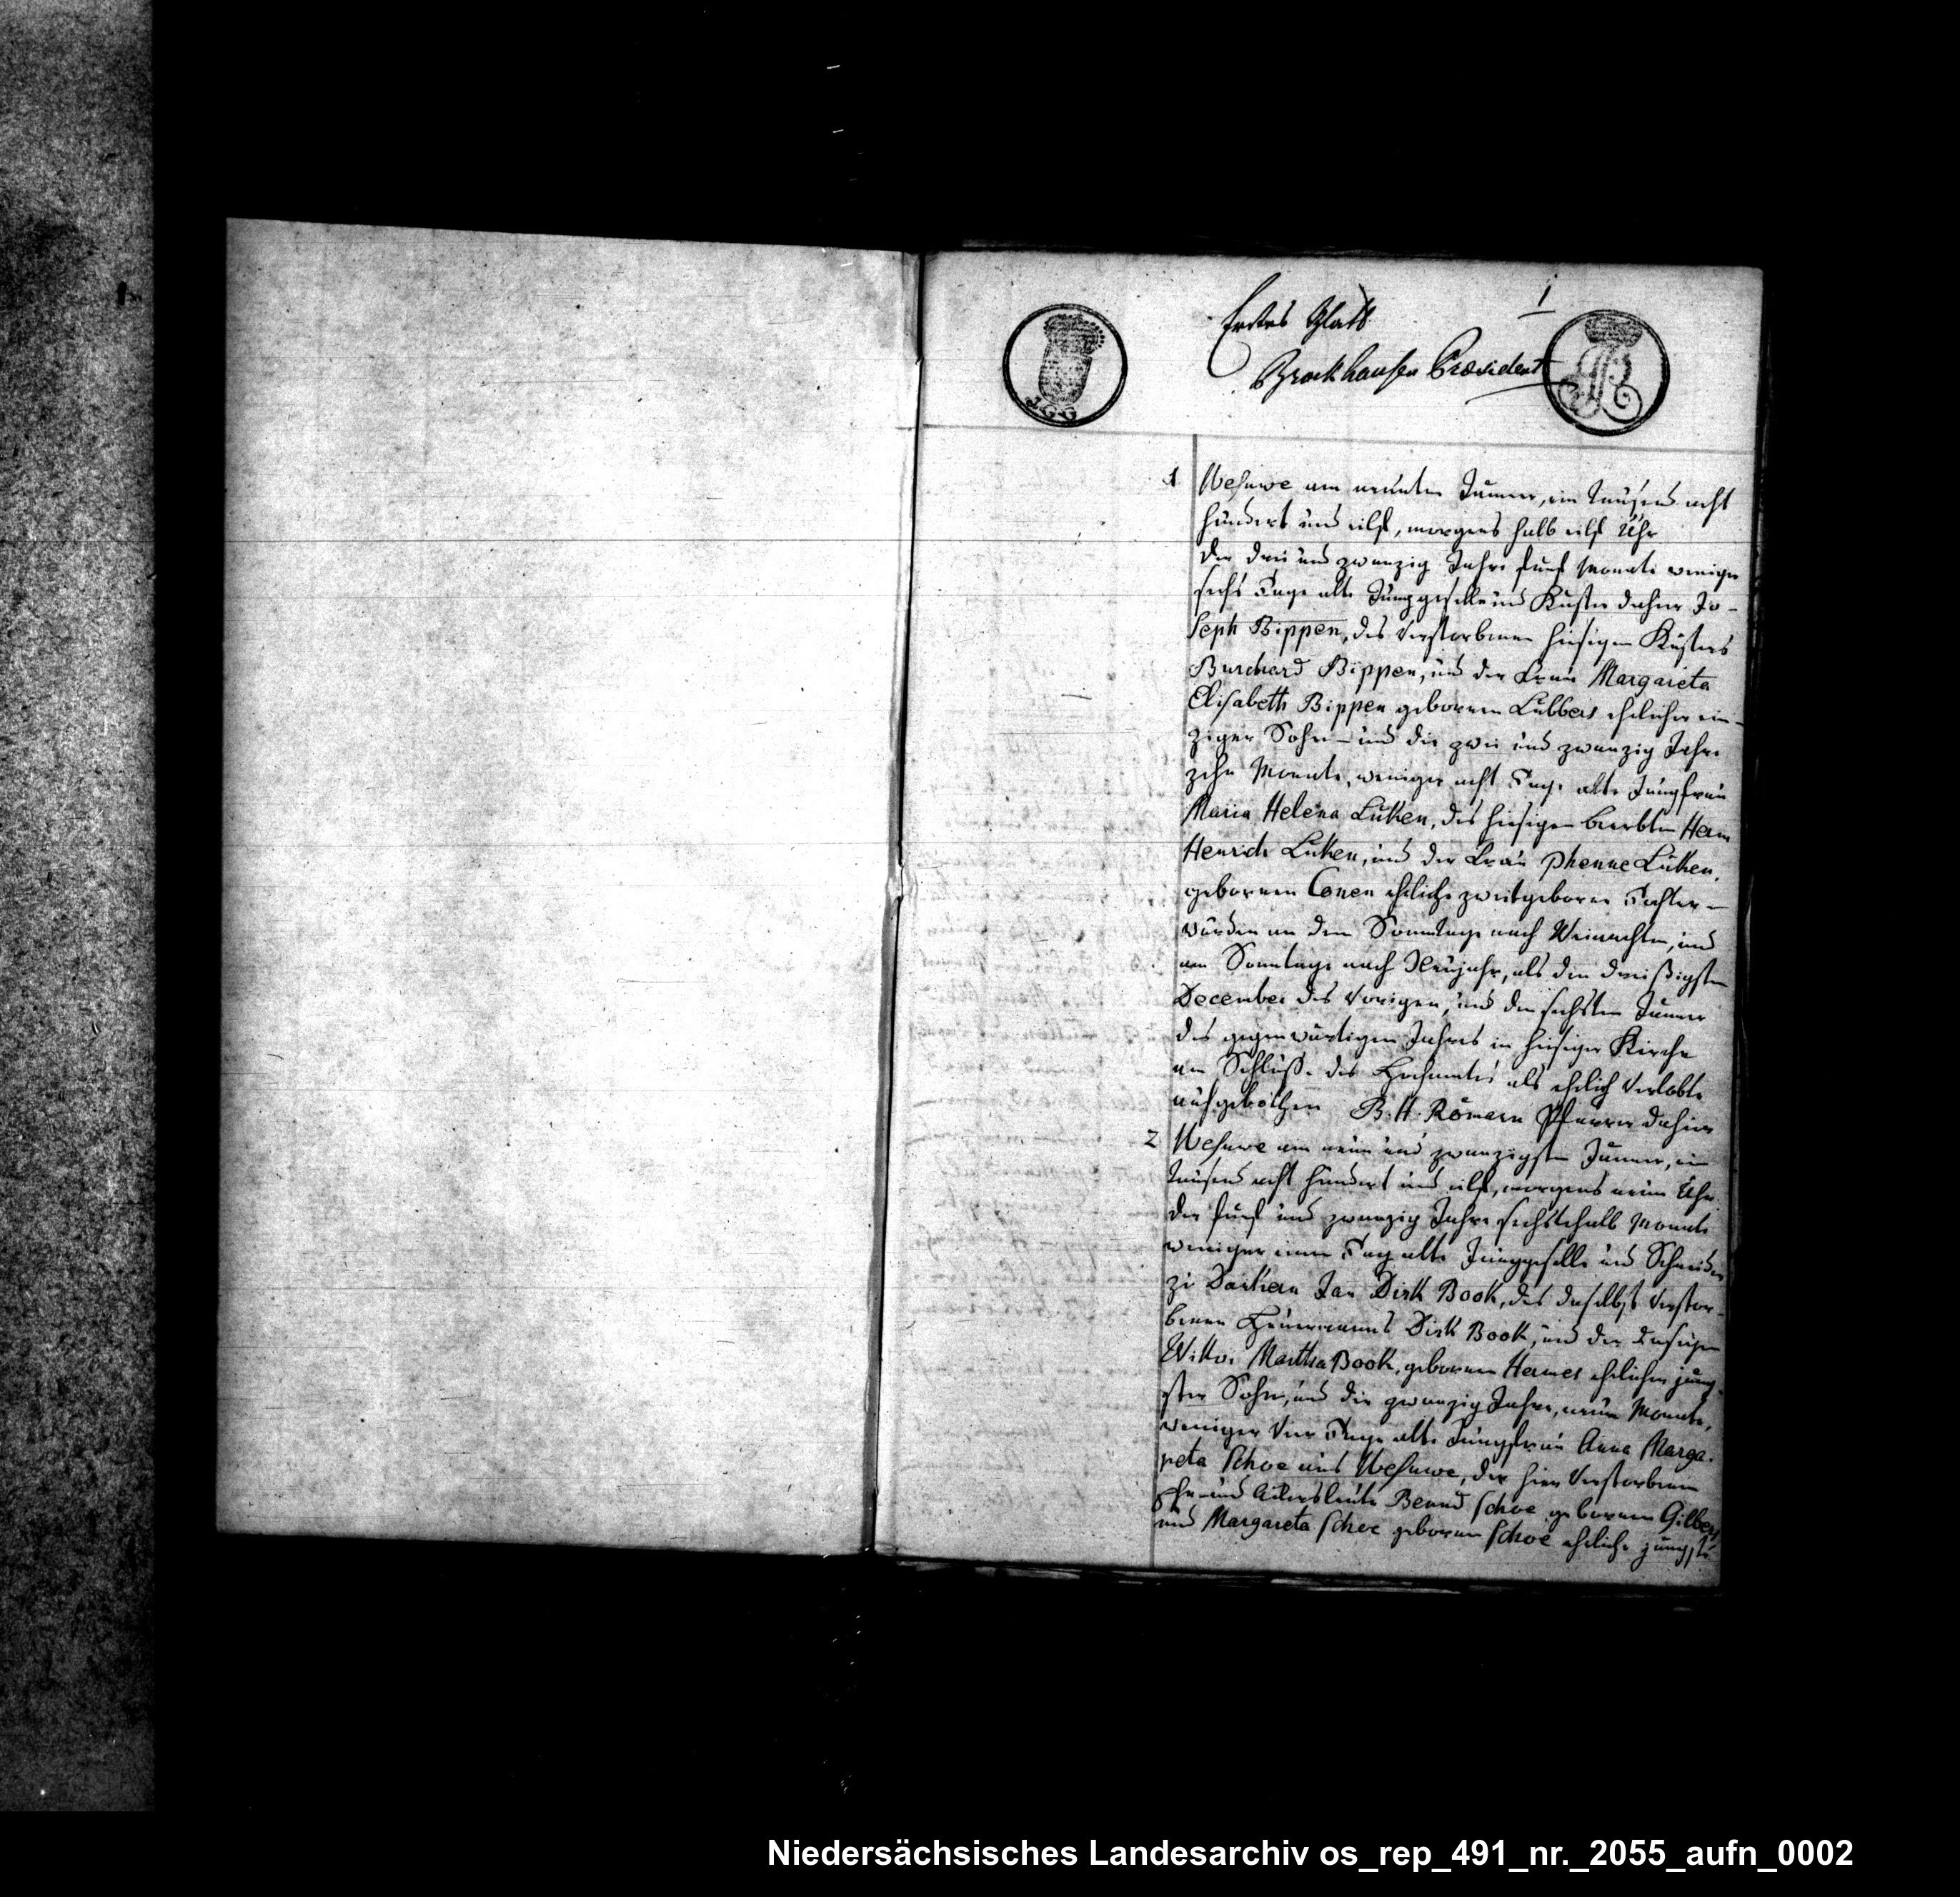 1
Erstes Blatt
Brockhausen Præsident
1 Wesuwe am neunten Januar, ein Tausend acht
hundert und eilf, morgens halb eilf Uhr
Der drei und zwanzig Jahre fünf Monate weniger
sechs Tage alte Junggeselle und Küster dahier Jo-
seph Bippen, des verstorbenen hiesigen Küsters
Burchard Bippen, und der Frau Margareta
Elisabeth Bippen gebornen Lübbers ehelicher ein-
ziger Sohn – und die zwei und zwanzig Jahre
zehn Monate, weniger acht Tage alte Jungfrau
Maria Helena Lüken, des hiesigen beerbten Herm
Henrich Lüken, und der Frau Phenne Lüken,
gebornen Conen eheliche zweitgeborne Tochter –
wurden an dem Sonntage nach Weinachten, und
am Sonntage nach Neujahr, als den dreißigsten
December des vorigen, und den sechsten Januar
des gegenwärtigen Jahres in hiesiger Kirche
am Schluße des Hochamtes als ehelich Verlobte
aufgebothen B. H. Römern Pfarrer dahier
2 Wesuwe am neun und zwanzigsten Januar, ein
tausend acht hundert und eilf, morgens neun Uhr
der fünf und zwanzig Jahre sechstehalb Monate
weniger einen Tag alte Junggeselle und Schneider
zu Dankern Jan Dirk Book, des daselbst verstor-
benen Heuermanns Dirk Book, und der dasigen
Wittwe Martha Book, gebornen Hermes ehelicher jüng-
ster Sohn, und die zwanzig Jahre, neun Monate,
weniger vier Tage alte Jungfrau Anna Marga-
reta Schoe aus Wesuwe, der hier verstorbenen
Ehe- und Ackersleute Bernd Schoe gebornen Gilbers
und Margareta Schoe gebornen Schoe eheliche jüngste
Niedersächsisches Landesarchiv os_rep_491_nr._2055_aufn_0002